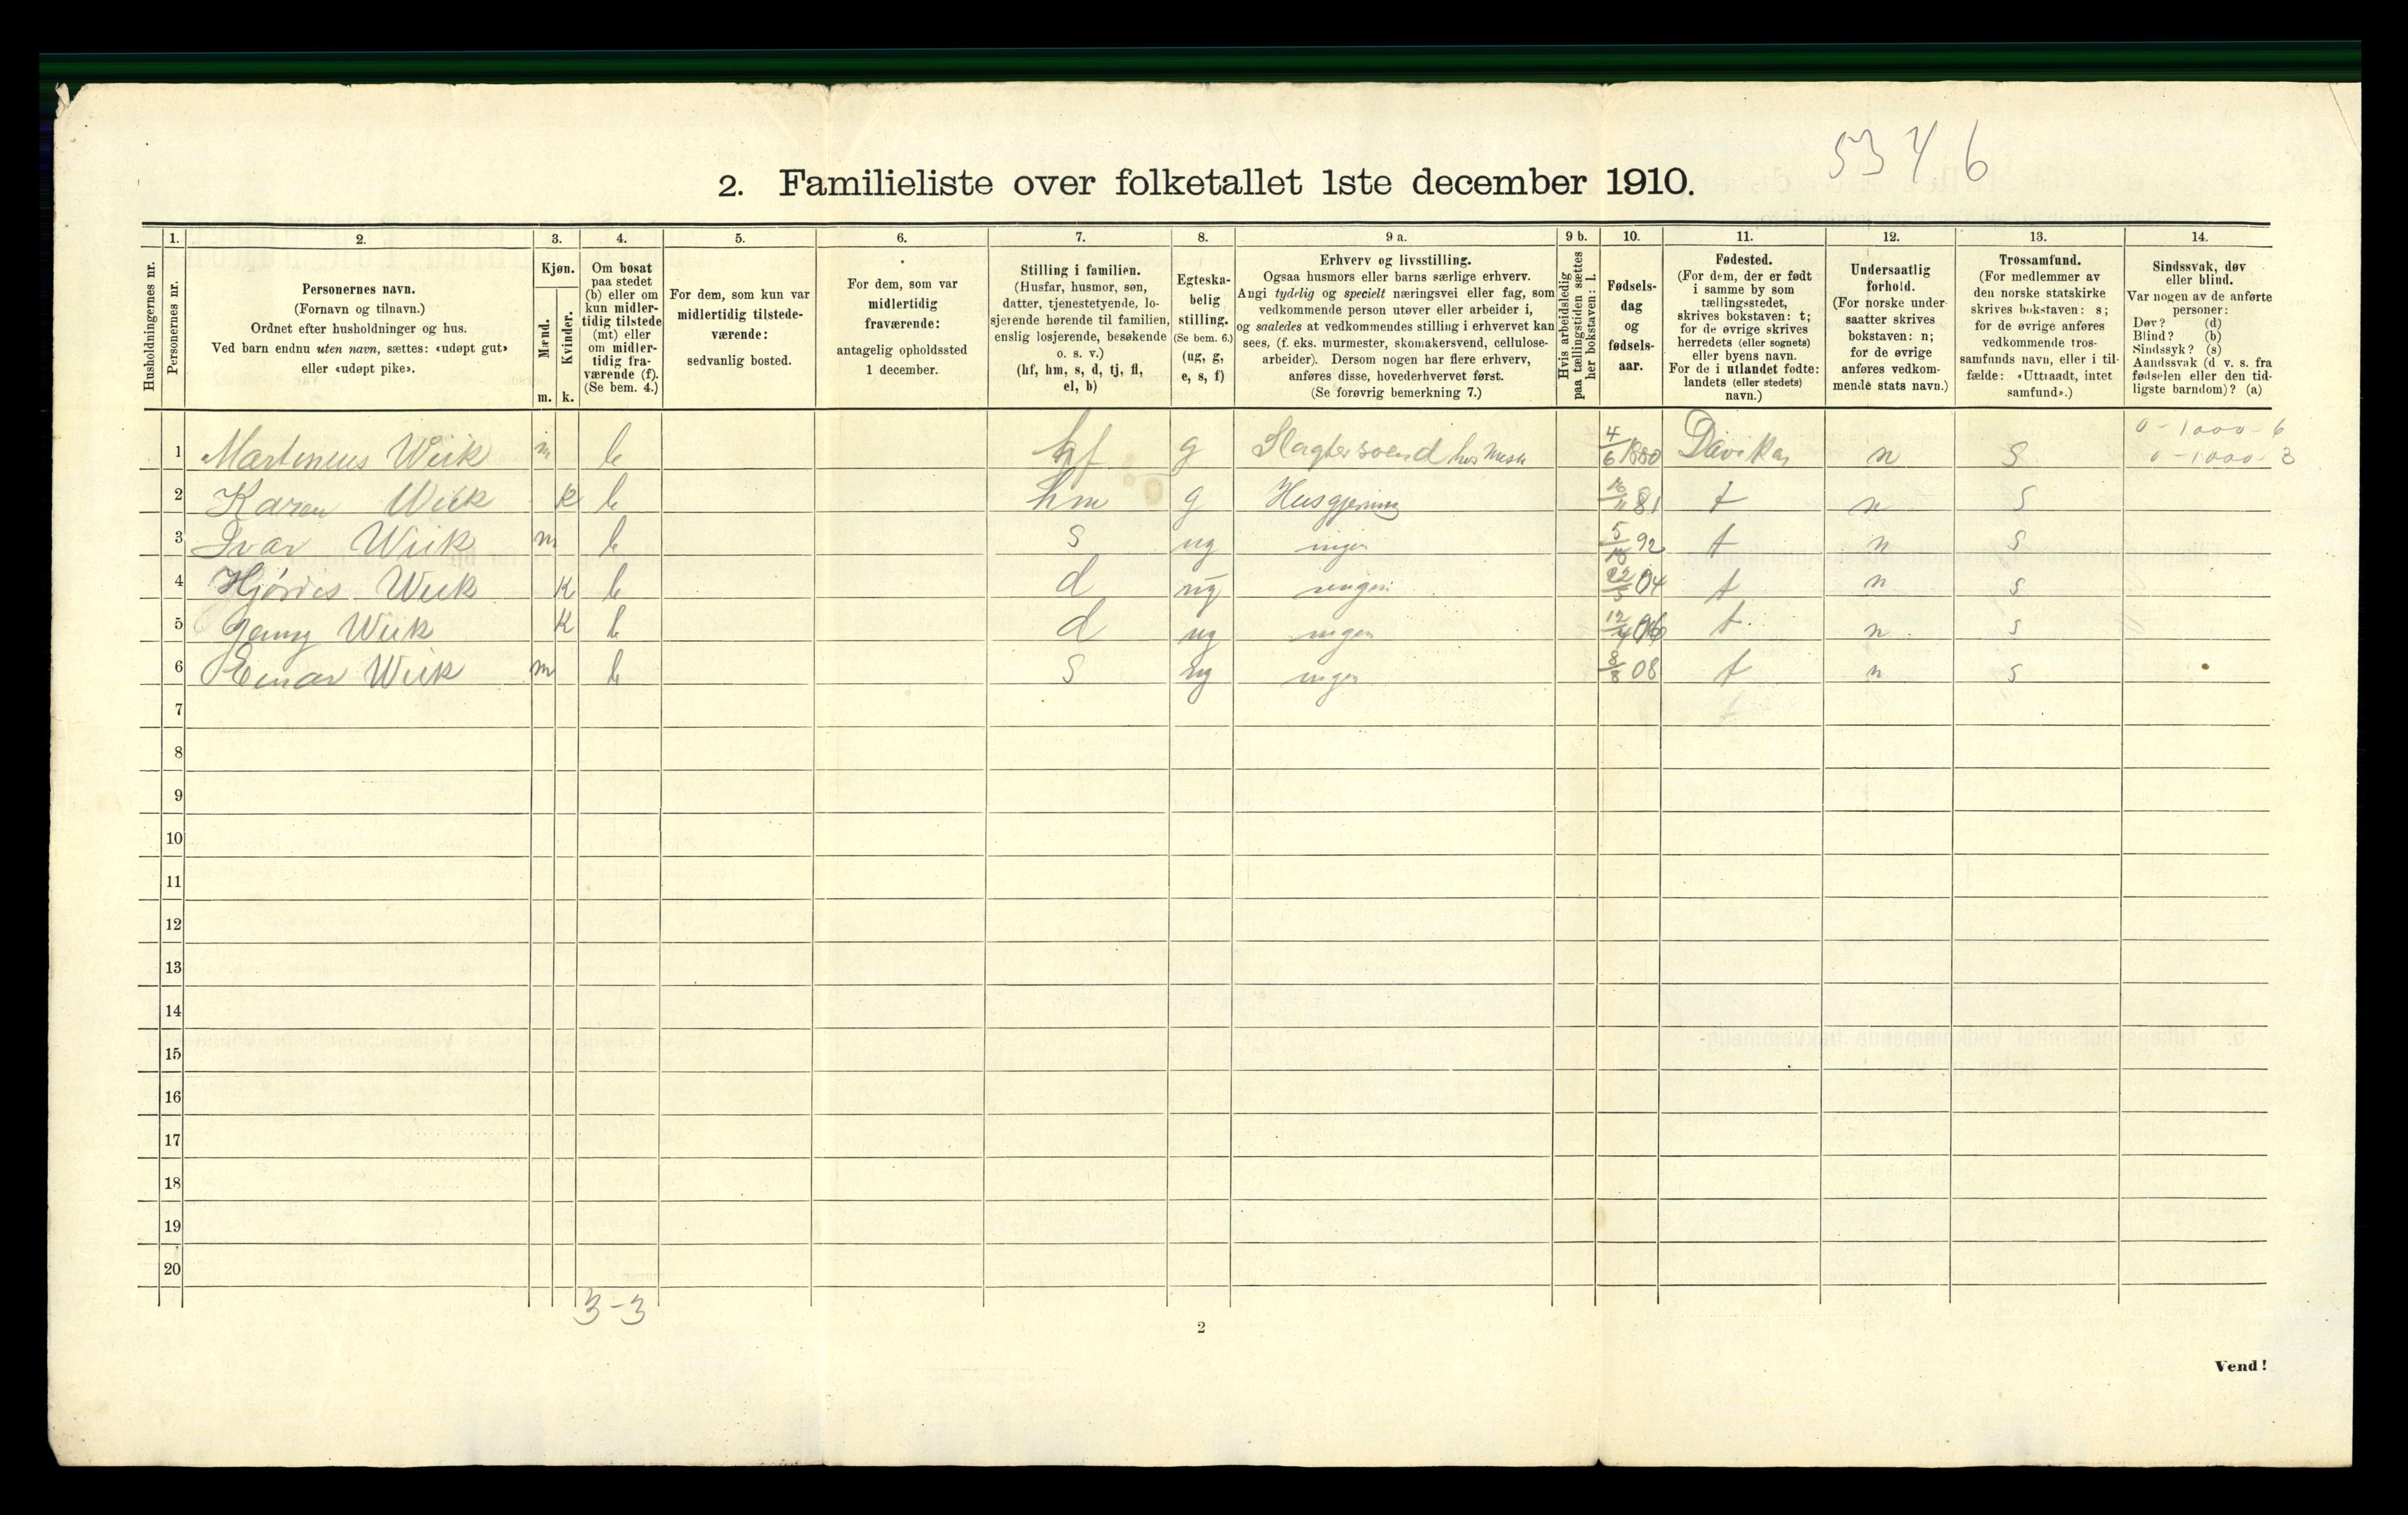 5346
2. Familieliste over folketallet 1ste december 1910.
Husholdningernes nr.
1.
Personernes nr.
2.
Personernes navn.
(Fornavn og tilnavn.)
Ordnet efter husholdninger og hus.
Ved barn endnu uten navn, sættes: «udøpt gut»
eller «udøpt pike».
3.
Kjøn.
Mænd.
Kvinder.
m.
k.
4.
Om bosat
paa stedet
(b) eller om
kun midler-
tidig tilstede
(mt) eller
om midler-
tidig fra-
værende (f).
(Se bem. 4.)
5.
For dem, som kun var
midlertidig tilstede-
værende:
sedvanlig bosted.
6.
For dem, som var
midlertidig
fraværende:
antagelig opholdssted
1 december.
7.
Stilling i familien.
(Husfar, husmor, søn,
datter, tjenestetyende, lo-
sjerende hørende til familien,
enslig losjerende, besøkende
o. s. v.)
(hf, hm, s, d, tj, fl,
el, b)
8.
Egteska-
belig
stilling.
(Se bem. 6.)
(ug, g,
e, s, f)
9 a.
Erhverv og livsstilling.
Ogsaa husmors eller barns særlige erhverv.
Angi tydelig og specielt næringsvei eller fag, som
vedkommende person utøver eller arbeider i,
og saaledes at vedkommendes stilling i erhvervet kan
sees, (f. eks. murmester, skomakersvend, cellulose-
arbeider). Dersom nogen har flere erhverv,
anføres disse, hovederhvervet først.
(Se forøvrig bemerkning 7.)
9 b.
Hvis arbeidsledig
paa tællingstiden sættes
her bokstaven: l.
10.
Fødsels-
dag
og
fødsels-
aar.
11.
Fødested.
(For dem, der er født
i samme by som
tællingsstedet,
skrives bokstaven: t;
for de øvrige skrives
herredets (eller sognets)
eller byens navn.
For de i utlandet fødte:
landets (eller stedets)
navn.)
12.
Undersaatlig
forhold.
(For norske under-
saatter skrives
bokstaven: n;
for de øvrige
anføres vedkom-
mende stats navn.)
13.
Trossamfund.
(For medlemmer av
den norske statskirke
skrives bokstaven: s;
for de øvrige anføres
vedkommende tros-
samfunds navn, eller i til-
fælde: «Uttraadt, intet
samfund».)
14.
Sindssvak, døv
eller blind.
Var nogen av de anførte
personer:
Døv? (d)
Blind? (b)
Sindssyk? (s)
Aandssvak (d. v. s. fra
fødselen eller den tid-
ligste barndom)? (a)
0-1000-6
1 Martinius Wiik m b hf g Slagtersvend hos 4/6 1880 Daviken n s 0-1000-3
2 Karen Wiik k b hm g Husgjerning 81 t n s
3 Ivar Wiik m b s ug ingen 5/10 92 t n s
4 Hjørdis Wiik k b d ug ingen 22/5 04 t n s
5 Jenny Wiik k b d ug ingen 12/4 06 t n s
6 Einar Wiik m b s ug ingen 8/8 08 t n s
7
8
9
10
11
12
13
14
15
16
17
18
19
20
3-3
2
Vend!